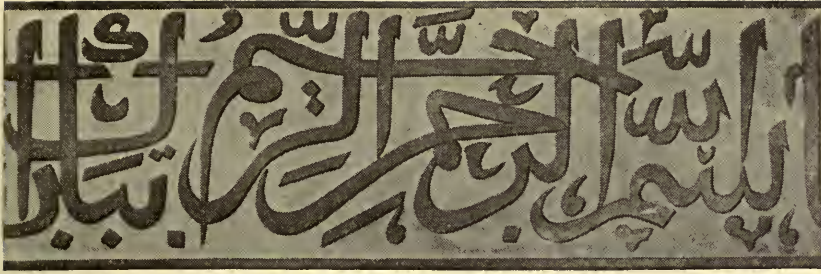 بسم الله الرحمن الرحيم تبارك